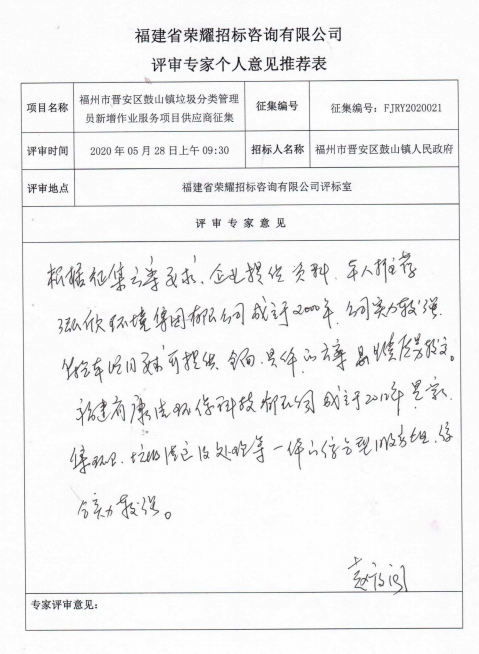 福建省荣耀招标咨询有限公司
评审专家个人意见推荐表
项目名称
福州市晋安区鼓山镇垃圾分类管理
员新增作业服务项目供应商征集
征集编号
征集编号：FJRY2020021
评审时间
2020 年 05 月 28 日上午 09:30
招标人名称
福州市晋安区鼓山镇人民政府
评审地点
福建省荣耀招标咨询有限公司评标室
评 审 专 家 意 见
根据征集文件要求、企业提供资料，本人推荐
泓欣环境集团有限公司成立于2000年，公司实力较强
可提供全面、具体的方案
福建省康洁环保科技有限公司成立于2012年，是一家
集环卫、垃圾清运及处理等一体的综合型服务企业，综
合实力较强。
专家评审意见：